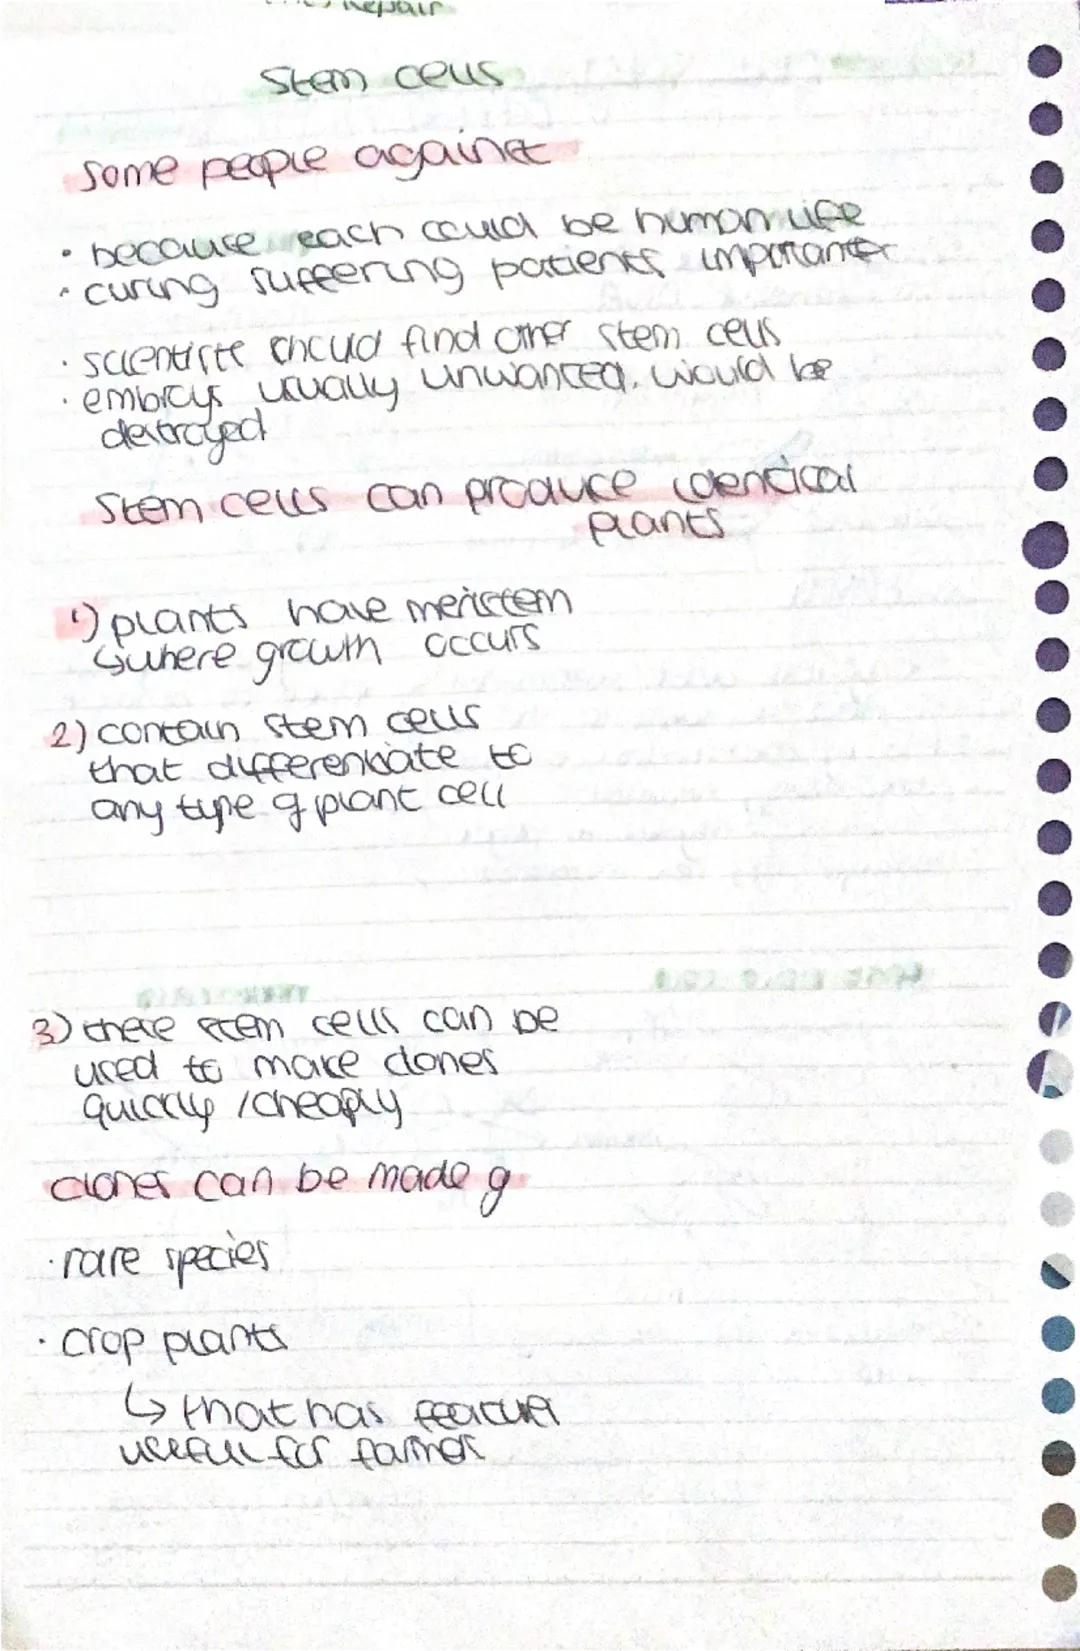 Repair
Stem cells
Some people against
• because each could be human life
• curing suffering patients importanter
• scientists should find other stem cells
• embroys usually unwanted. would be
destroyed
Stem cells can produce identical
plants
1) plants have meristem
↳ where growth occurs
2) contain stem cells
that differentiate to
any type of plant cell
3) these stem cells can be
used to make clones
quickly / cheaply
clones can be made of
• rare species
• crop plants
↳ that has features
useful for farmer